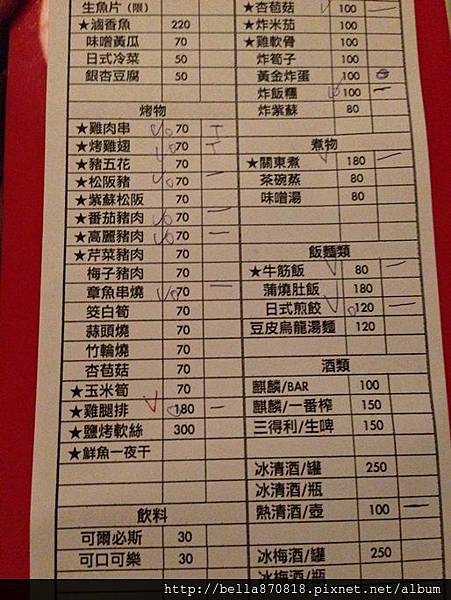 生魚片(限)
★滷香魚 220
味噌黃瓜 70
日式冷菜 50
銀杏豆腐 50
烤物
★雞肉串 70
★烤雞翅 70
★豬五花 70
★松阪豬 70
★紫蘇松阪 70
★番茄豬肉 70
★高麗豬肉 70
★芹菜豬肉 70
梅子豬肉 70
章魚串燒 70
筊白筍 70
蒜頭燒 70
竹輪燒 70
杏苞菇 70
★玉米筍 70
★雞腿排 180
★鹽烤軟絲 300
★鮮魚一夜干
飲料
可爾必斯 30
可口可樂 30
★杏苞菇 100
★炸米茄 100
★雞軟骨 100
炸筍子 100
黃金炸蛋 100
炸飯糰 100
炸紫蘇 80
煮物
★關東煮 180
茶碗蒸 80
味噌湯 80
飯麵類
★牛筋飯 80
蒲燒肚飯 180
日式煎餃 120
豆皮烏龍湯麵 120
酒類
麒麟/BAR 100
麒麟/一番榨 150
三得利/生啤 150
冰清酒/罐 250
冰清酒/瓶
熱清酒/壺 100
冰梅酒/罐 250
冰梅酒/瓶
http://bella870818.pixnet.net/album